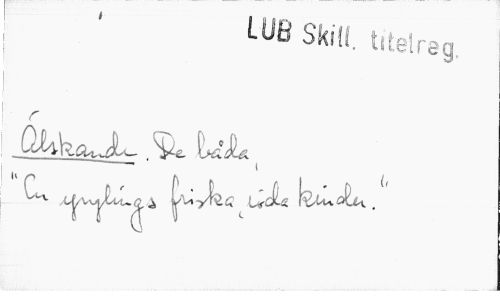 LUB Skill. titelreg.
Älskande. De båda,
"En ynglings friska, röda kinder."